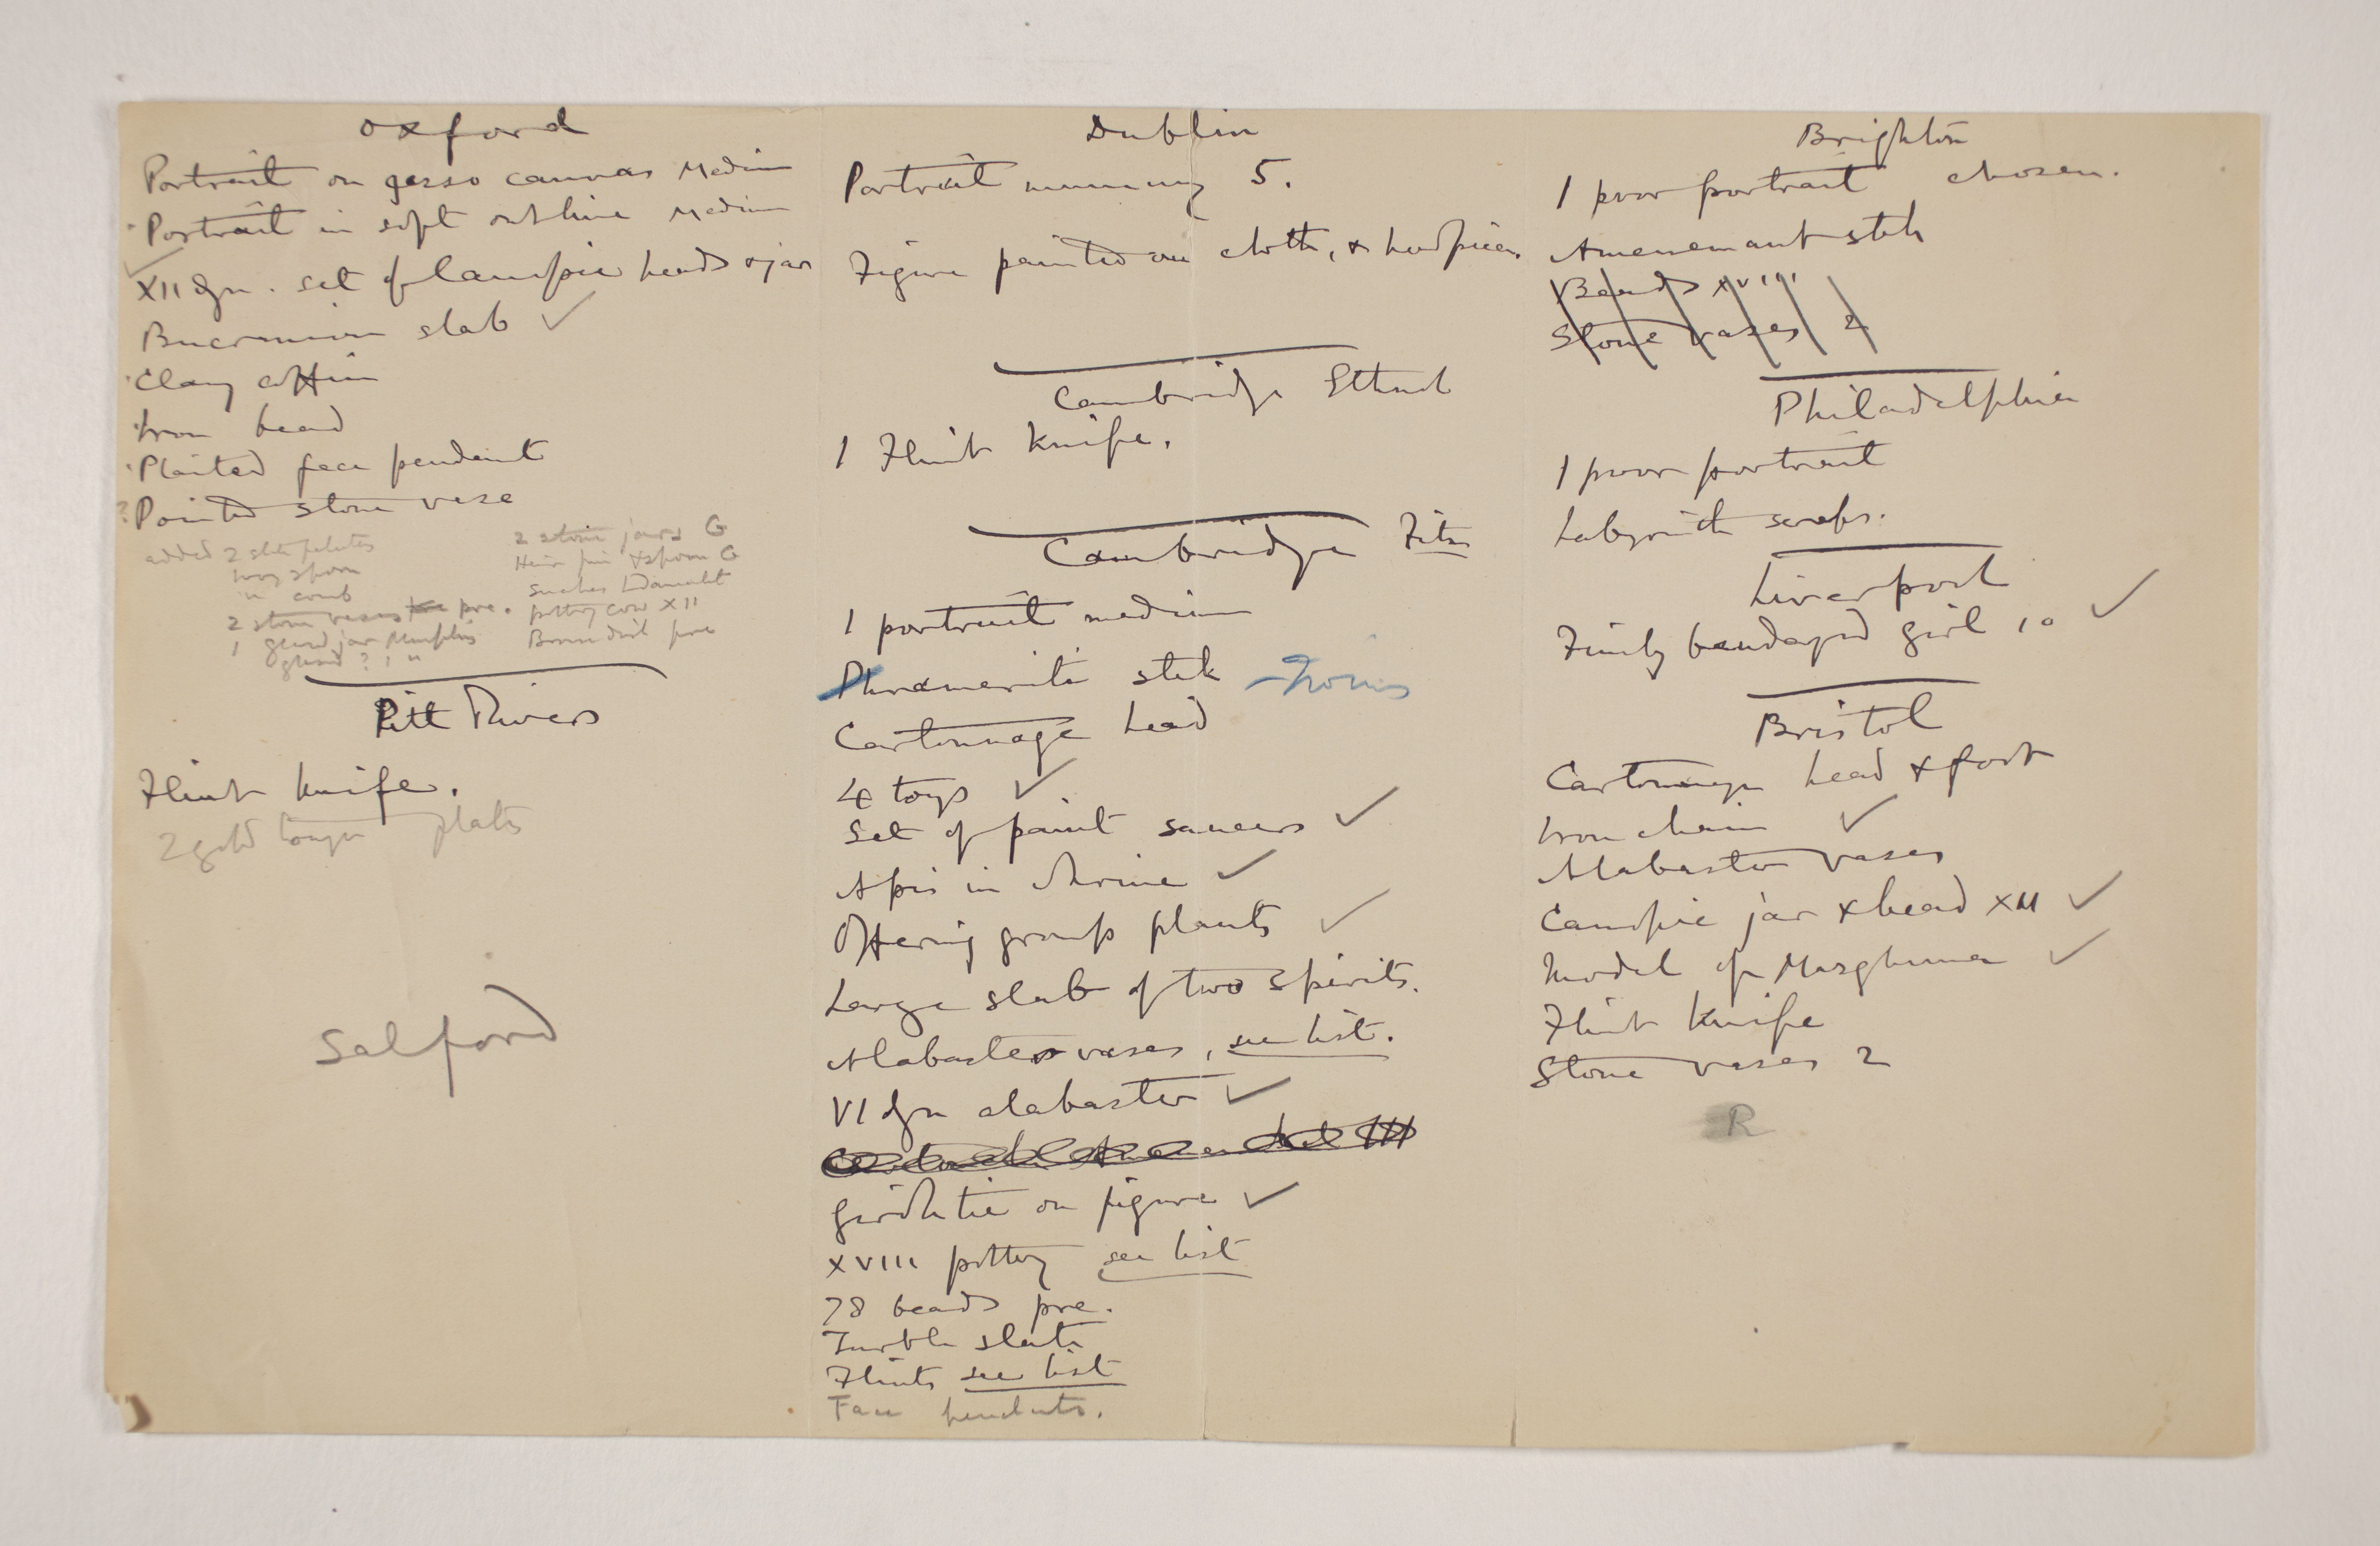 Oxford
Portrait on gesso canvas Medium
Portrait in soft outline Medium
XII dyn. set of canopic heads & jar
Bucranium slab ✓
Clay coffin
Iron bead
Plaited face pendant
? Pointed stone vase
added 2 slate palettes
ivory spoon
" comb
2 stone vases pre.
1 glazed jar Memphis
glazed ? 1 "
2 stone jars G
Hair pin & spoon G
pottery cow XII
pre
Pitt Rivers
Flint knife.
2 gold tongue plates
Salford
Dublin
Portrait mummy 5.
Figure painted on cloth, & headpiece.
Cambridge Ethnol
1 Flint knife.
Cambridge Fitz
1 portrait medium
stele
Cartonnage head
4 toys ✓
Set of paint saucers ✓
Apis in shrine ✓
Offering group plants ✓
Large slab of two spirits.
Alabaster vases, see list.
VI dyn alabaster ✓
girdle tie on figure ✓
XVIII pottery see list
78 beads pre.
Turtle slate
Flints see list
Face pendants.
Brighton
1 poor portrait chosen.
Amenemant stele
Beads XVIII
Stone vases 2
Philadelphia
1 poor portrait
Labyrinth scraps.
Liverpool
Finely bandaged girl, 10 ✓
Bristol
Cartonnage head & foot
Iron chain ✓
Alabaster vases
Canopic jar & head XII ✓
Model of Mazghuna ✓
Flint Knife
Stone vases 2
R